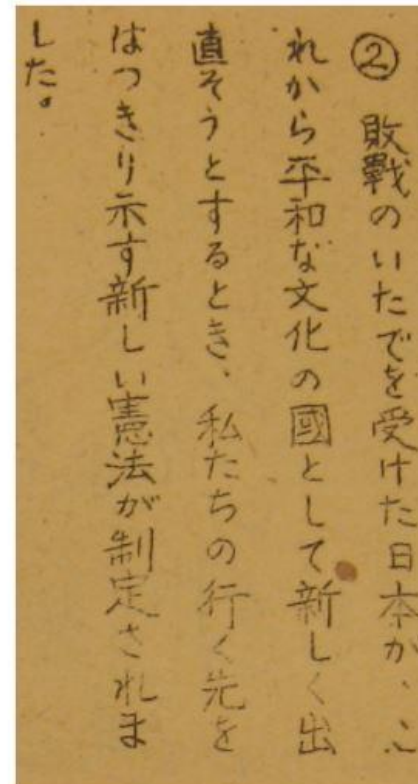 ② 敗戰のいたでを受けた日本が、こ
れから平和な文化の國として新しく出
直そうとするとき、私たちの行く先を
はつきり示す新しい憲法が制定されま
した。